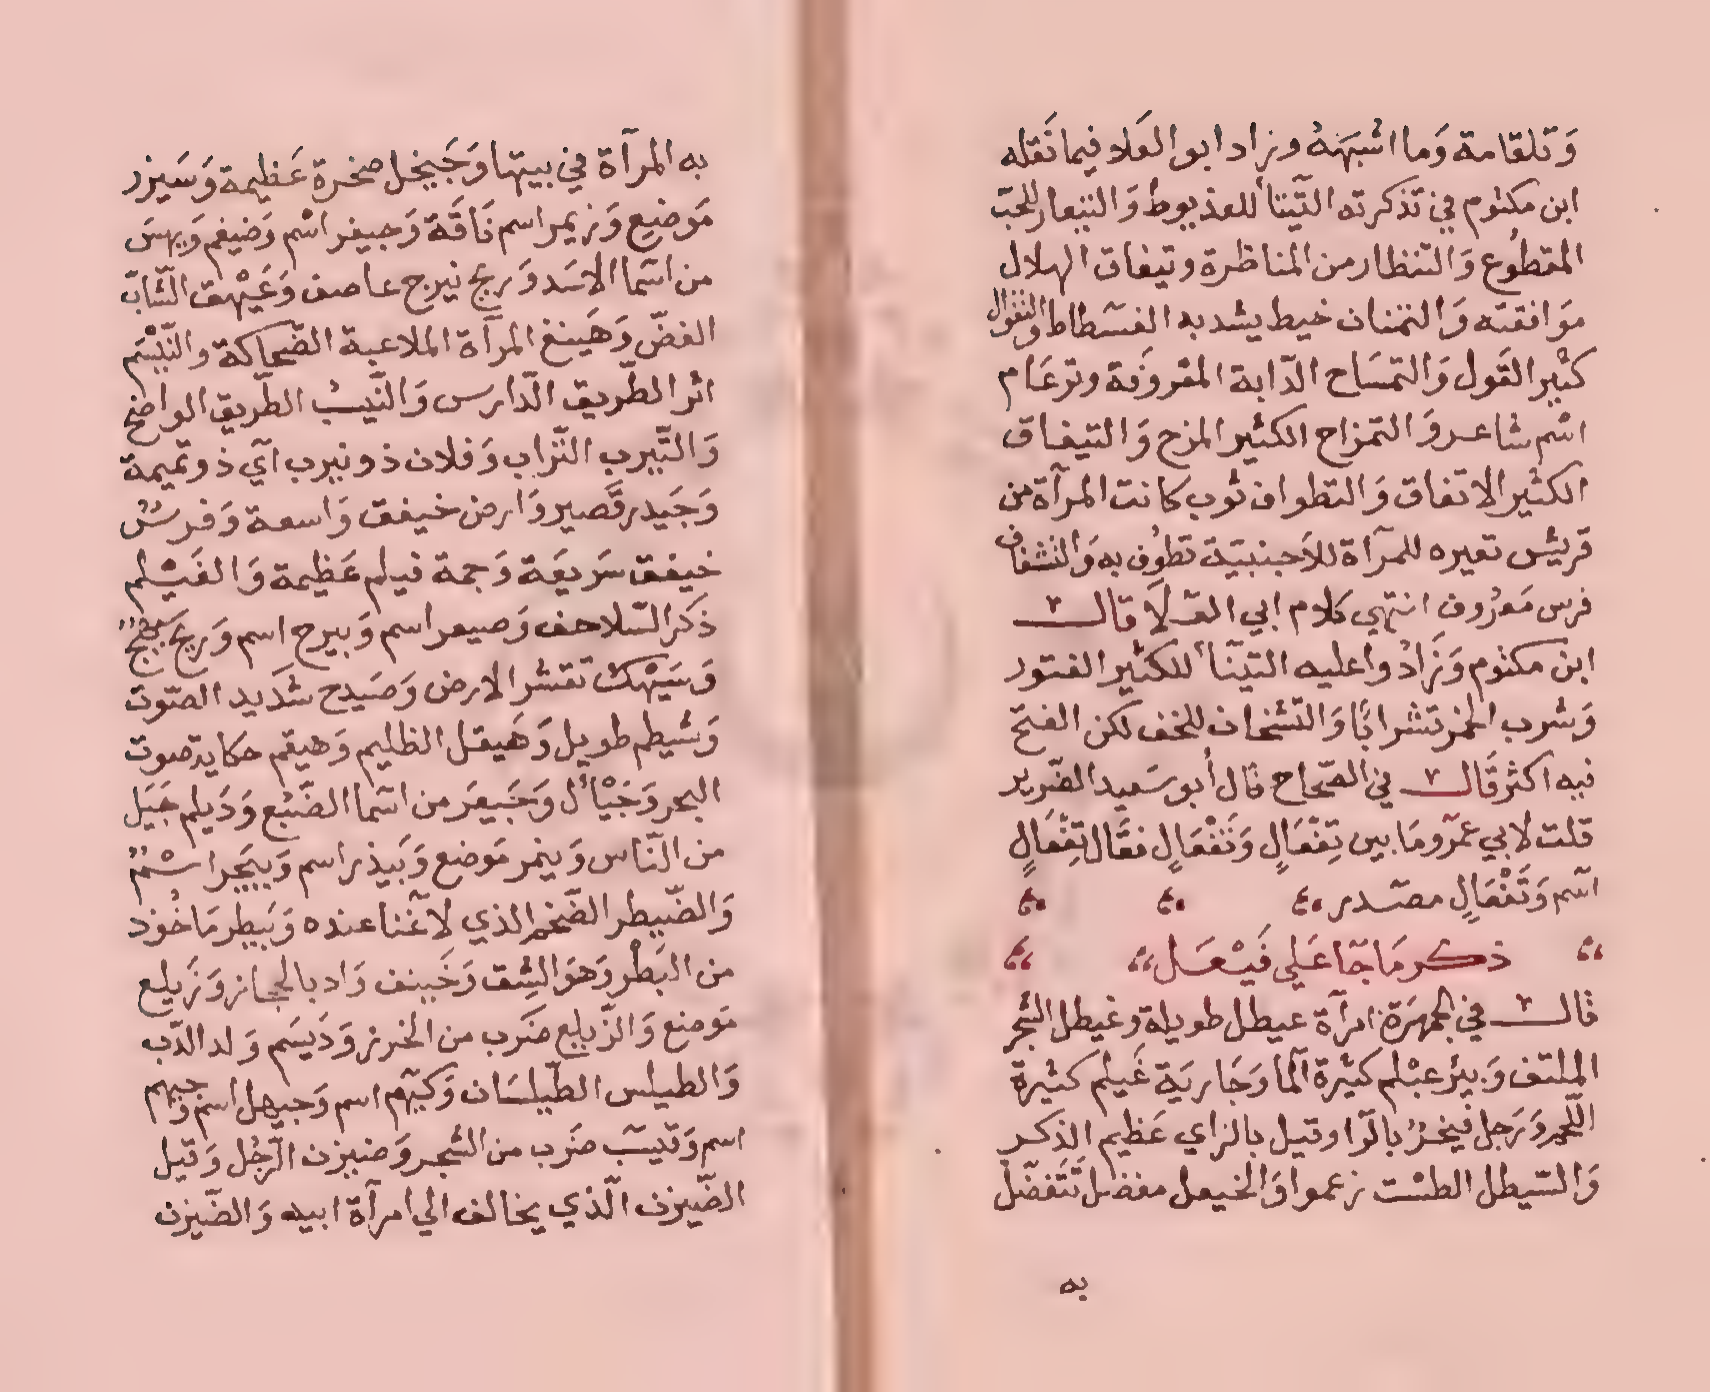 وَتلقامة وَما اشْبَهَهُ وزاد ابو العَلاء فيما نَقله
ابن مكتوم في تذكرته التّيتاأ للعذيوط وَالتبعار للحبّ
المقطُوع وَالتنظار من المناظرة وتيفاق الهلال
موَافقته وَالتمتان خيط يشد به الفسْطاط والتقوال
كثير القول وَالتمسَاح الدّابة المعْروفة وترعَام
اسْم شاعر وَالتمزاح الكثير المزح وَالتيفاق
الكثير الاتفاق وَالتطواف ثوب كانت المرآة من
قريْش تعيره للمرآة للاَجنبيّة تطوُف به وَالتشفاف
فرس مَعرُوف انتهي كلام ابي العَلاَ قالــ
ابن مكتوم وَزَادُوا عليه التيتاأ للكثير الفتور
وَشرب الخمر تشرابًا وَالتسْخان للخف لكن الفتح
فيه اكثر قَالــ في الصّحاح قال أبو سَعيد الضّرير
قلت لابي عمرو ومَا بين تِفْعَالٍ وَتَفْعَالٍ فقَال تِفْعَالٍ
اسْم وَتَفْعَالٍ مصْدر
ذكر مَا جَا عَلي فَيْعَل
قالــ في الجمهَرَة امرآة عيطل طويلة وغيطل الشجر
الملتف وَبيئر عيْلم كثيْرة المَا وَجَاريَة غَيلم كثيْرة
اللّحم وَرَجل فيخرُ بالرّا وقيل بالزاي عَظيم الذكر
وَالسّيطل الطسْت زعموا وَالخيعل مفضل تَتَفضّل
به
به المرآة في بيتها وَجَيحل صخرة عَظيمة وَسَيزر
مَوضيع وَزيمر اسم نَاقَة وَجيفر اسْم وَضيغم وَبيهسَ
من اسَما الاسَد وَريح نيرج عاصف وَغَيْهق الشّابّ
الغضّ وَهَينغ المرآة الملاعبة الضّحاكة والنّيْسَم
اثر الطّريق الدّارس وَالنّيسبُ الطّريق الواضح
وَالنّيرب التّراب وَفلان ذو نيرب آي ذو نميمة
وَجَيدر قَصير وَارض خيفق وَاسعة وَفرسُ
خيفق سَريعَة وَجمة فيلم عَظيمة وَالغَيْلم
ذكر السّلاحف وَصيعر اسم وَبيرح اسم وَريح سَيْهج
وَسَيْهكُ تقشر الارض وَصَيدح شدَيد الصّوت
وَشَيظم طويل وَهَيقل الظليم وَهيقم حكاية صوت
البحر وَجَيْأل وَجَيعَر من اسَما الضَّبُع وَدَيلم جَيَل
من النّاس وَينمر مَوضع وَبَيذر اسم وَبيجَر اسْمُ
وَالضّيطر الضّخم الذي لا غَنا عنده وَبَيطر مَاخُوذ
من البَطْر وَهوَ الشّق وَخَينف وَاد بالحجاز وَزَيلع
مَوضع وَالزّيلع ضَرب من الخرز وَدَيسَم وَلد الدّب
وَالطيلس الطّيلسَان وَكيْهم اسم وَجيهل اسم وَجيهم
اسم وَقيسَب ضَرب من الشّجر وَضيزن الرّجُل وَقيل
الضّيزن الّذي يخالف الي امرآة ابيه وَالضّيزن